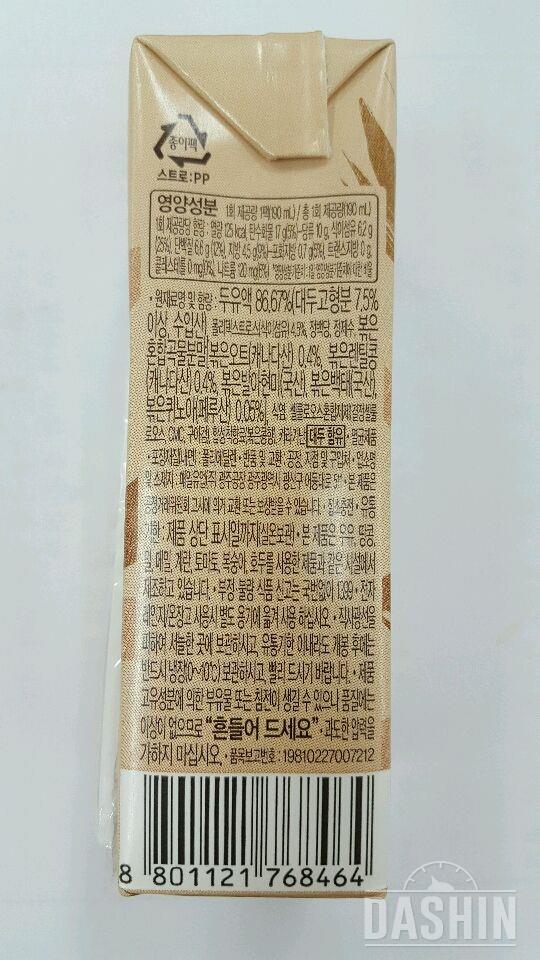 종이팩
스트로:PP
영양성분 1회 제공량 1팩(190 mL) / 총 1회 제공량(190 mL)
1회 제공량당 함량 · 열량 125 kcal, 탄수화물 17 g(5%)-당류 10 g, 식이섬유 6.2 g
(25%), 단백질 6.6 g (12%), 지방 4.5 g(9%)-포화지방 0.7 g(5%), 트랜스지방 0 g,
콜레스테롤 0 mg(0%), 나트륨 120 mg(6%)
· 원재료명 및 함량 : 두유액 86.67%(대두고형분 7.5%
이상, 수입산), 폴리덱스트로스(식이섬유) 4.9%, 정백당, 정제수, 볶은
혼합곡물분말[볶은오트(캐나다산) 0.4%, 볶은렌틸콩
(캐나다산) 0.4%, 볶은발아현미(국산), 볶은백태(국산),
볶은퀴노아(페루산) 0.05%], 식염,
카라기난 대두 함유 · 멸균제품
· 포장재질(내면) : 폴리에틸렌 · 반품 및 교환 : 공장, 지점 및 구입처 · 업소명
및 소재지 : 매일유업(주) 광주공장 광주광역시 광산구 · 본 제품은
공정거래위원회 고시에 의거 교환 또는 보상받을 수 있습니다. · 유통
기한 : 제품 상단 표시일까지(실온보관) · 본 제품은 우유, 땅콩,
밀, 메밀, 계란, 토마토, 복숭아, 호두를 사용한 제품과 같은 시설에서
제조하고 있습니다. · 부정·불량 식품 신고는 국번없이 1399 · 전자
레인지/온장고 사용시 별도 용기에 옮겨 사용 하십시오. · 직사광선을
피하여 서늘한 곳에 보관하시고, 유통기한 이내라도 개봉 후에는
반드시 냉장(0~10℃) 보관하시고, 빨리 드시기 바랍니다. · 제품
고유성분에 의한 부유물 또는 침전이 생길 수 있으나 품질에는
이상이 없으므로 "흔들어 드세요" · 과도한 압력을
가하지 마십시오. · 품목보고번호 : 19810227007212
8 801121 768464
DASHIN